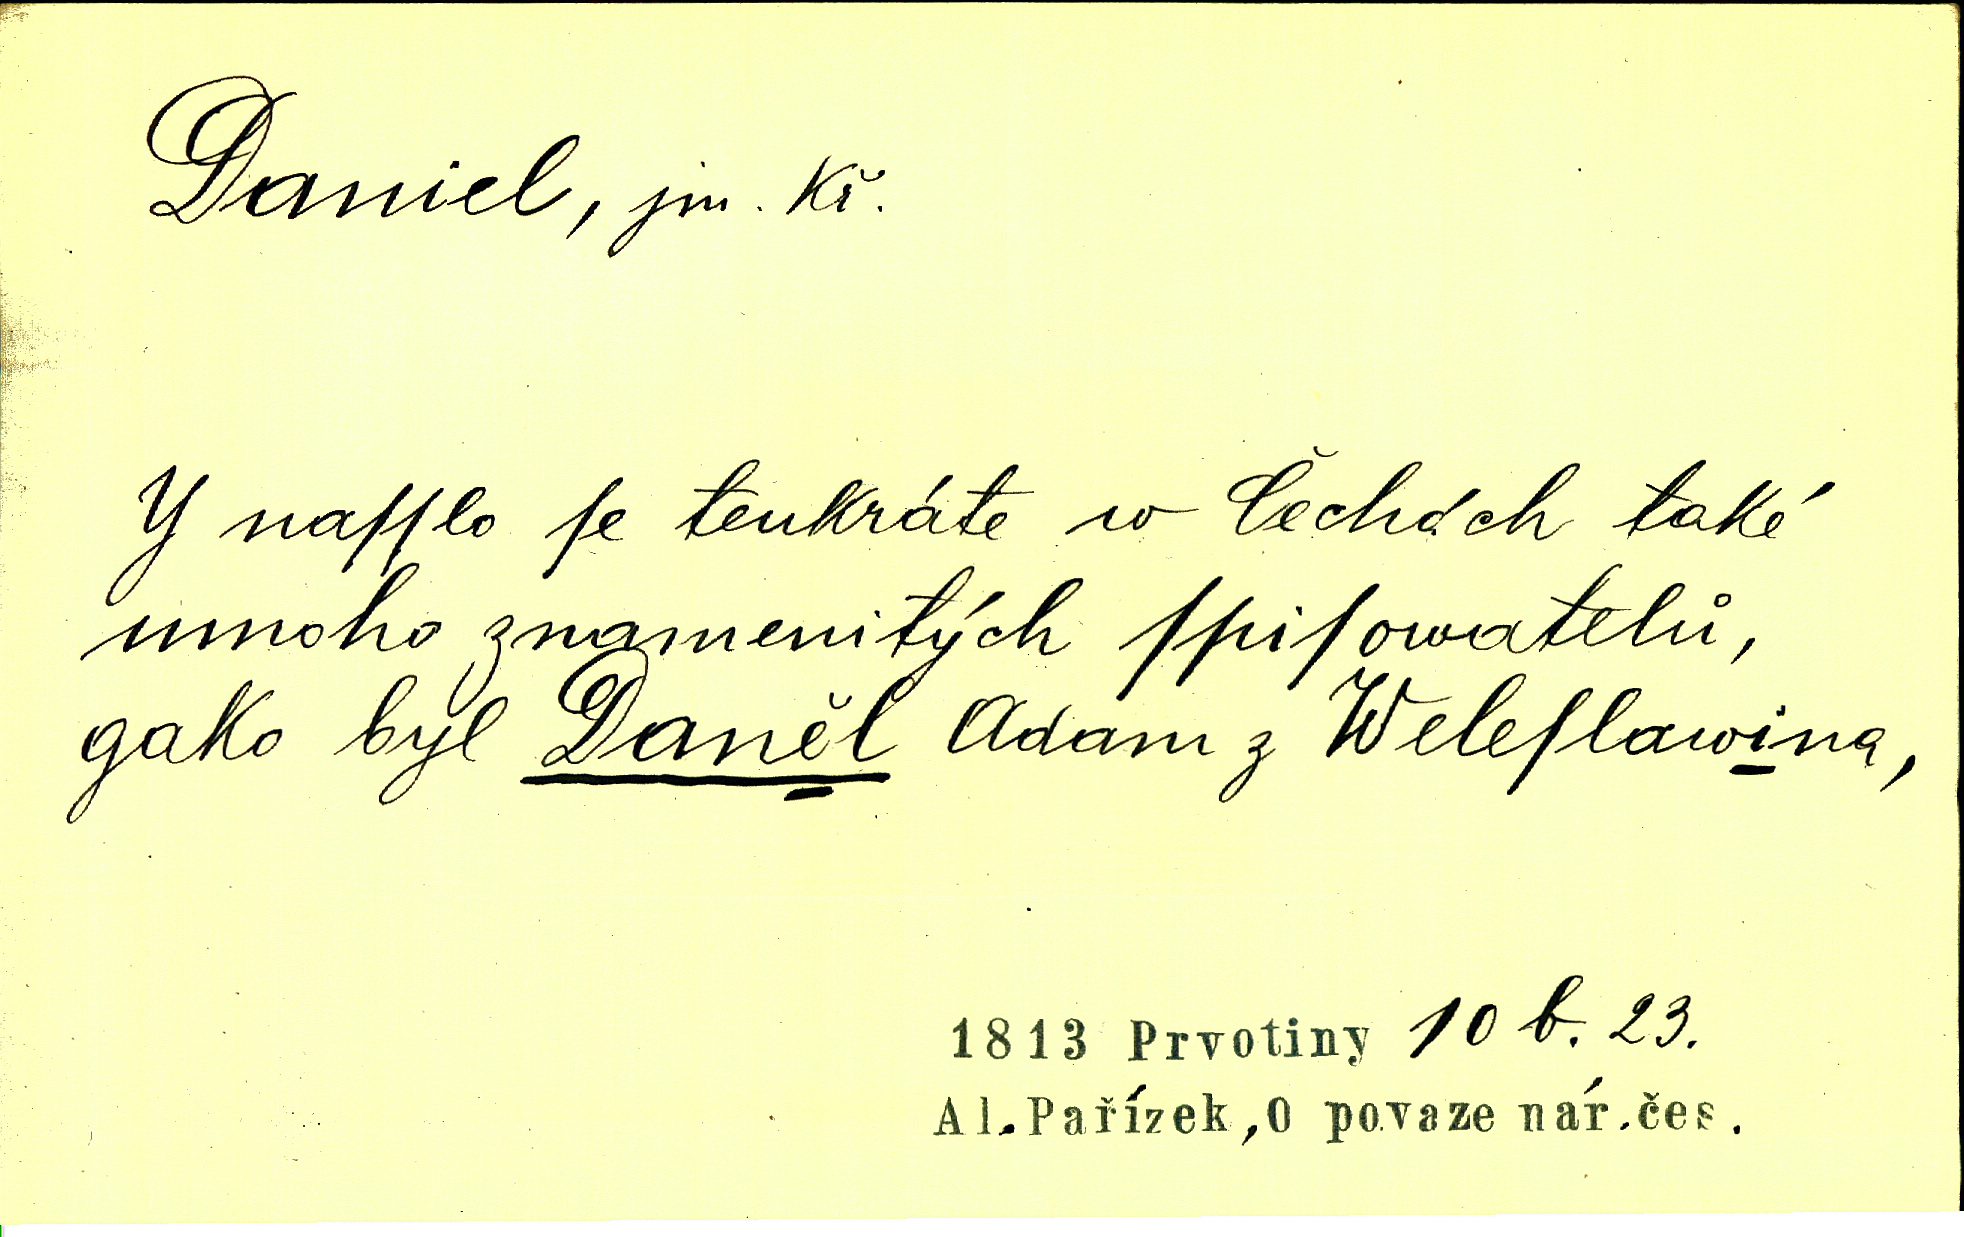 Daniel, jm. kř.
Y naſſlo ſe tenkráte w Čechách také
mnoho znamenitých ſpiſowatelů,
gako byl Daněl Adam z Weleſlawina,
1813 Prvotiny 10 b. 23.
Al. Pařízek, O povaze nár. čes.